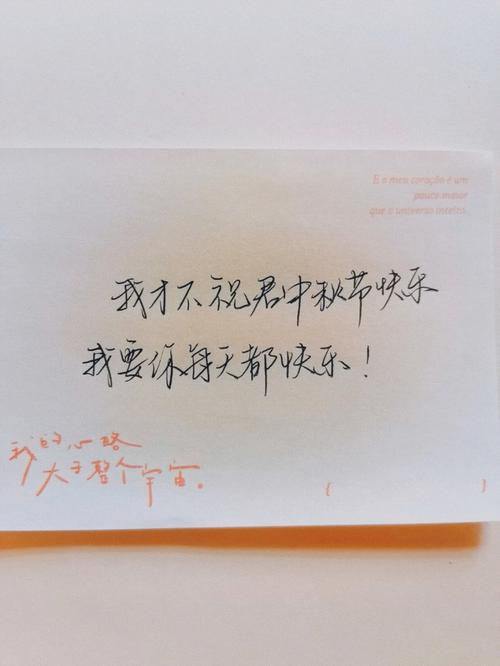 E o meu coração é um
pouco maior
que o universo inteiro.
我才不祝君中秋节快乐
我要你每天都快乐！
我的心略
大于整个宇宙。
( )